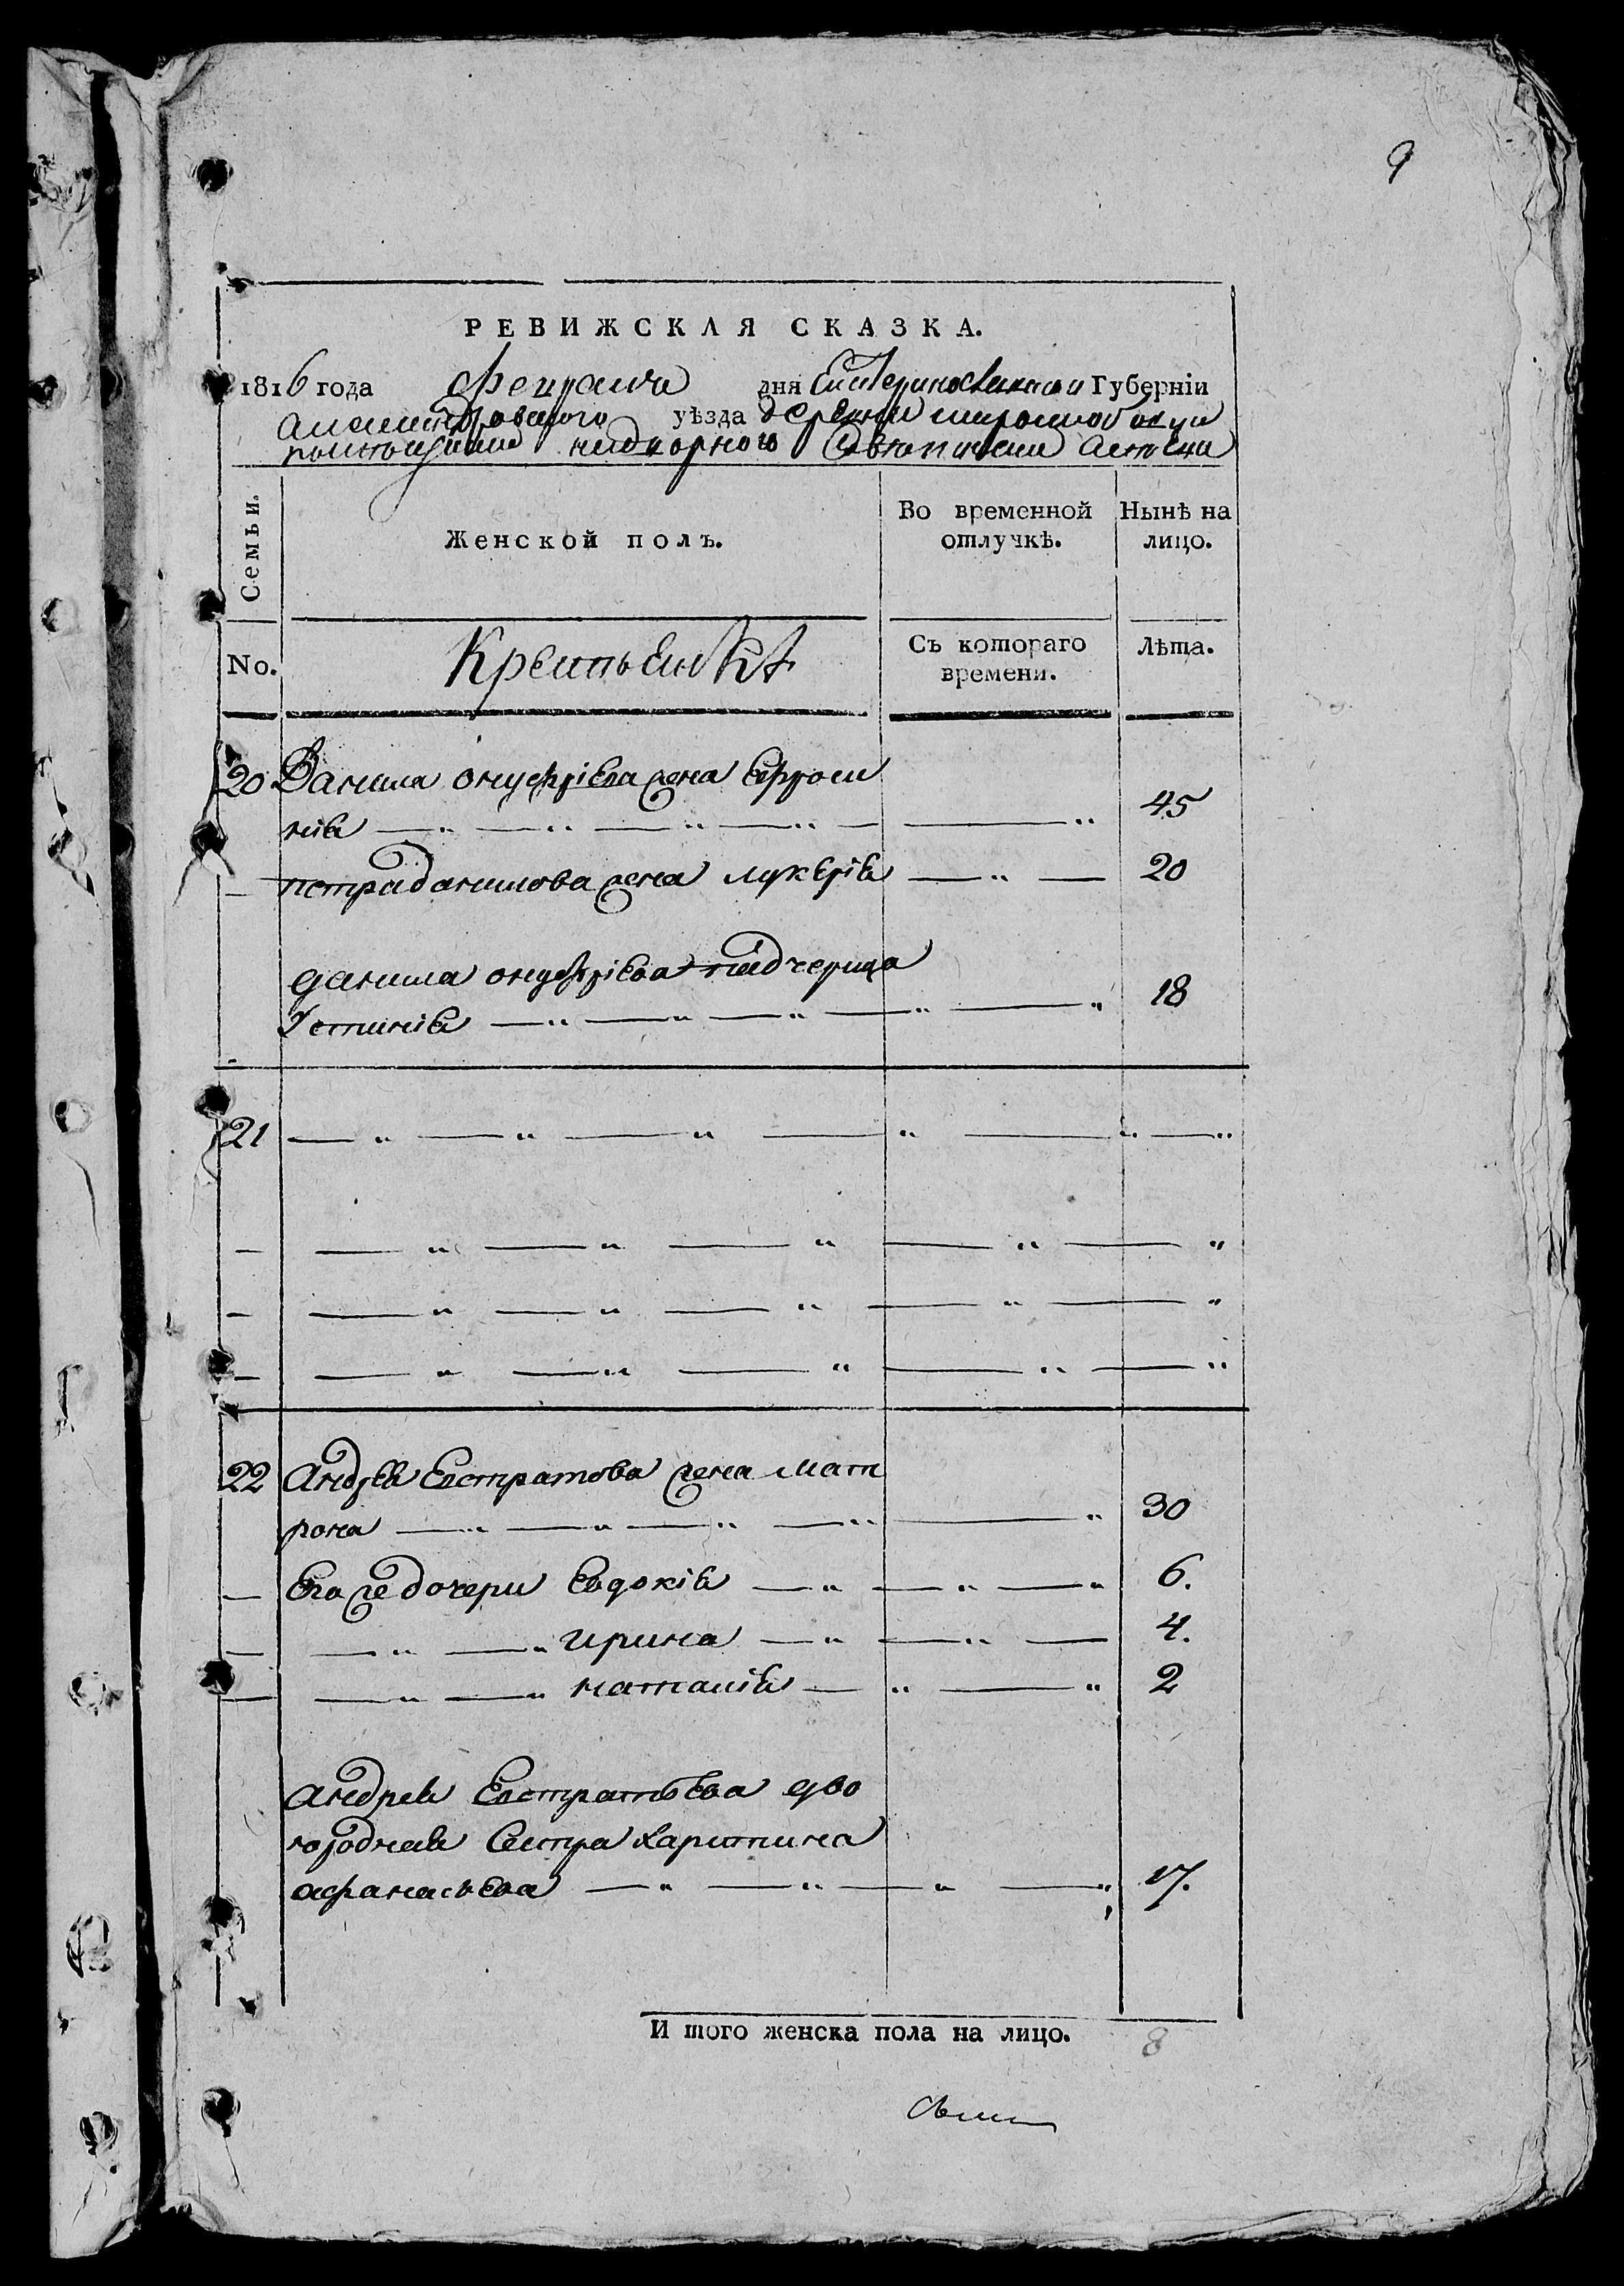 9
РЕВИЖСКАЯ СКАЗКА.
1816 года Февраля дня Екатеринославской Губерніи
Александровского уѣзда деревни широкой
надворного Советника
Семьи.
Женской полъ.
Во временной отлучкѣ.
Нынѣ на лицо.
No.
Крестьянѣ
Съ котораго времени.
Лѣта.
20 Данила онуфріева жена Ефроси
нія — „ — „ — „ — „ — — „ 45
— петра данилова жена лукерія — „ — 20
данила онуфріева падчерица
Устинія — „ — „ — „ — „ — „ 18
21 — „ — „ — „ — „ — „ — „
— — „ — „ — „ — „ — „
— — „ — „ — „ — „ — „
— — „ — „ — „ — „ — „
22 Андрея Евстратова жена мат
рона — „ — „ — „ — „ — „ 30
— Его же дочери Евдокія — „ — „ — „ 6.
— — „ — „ ирина — „ — „ — 4.
— — „ — „ наталія — „ — „ 2
андрея Евстратьева дво
юродная Сестра Харитина
афанасьева — „ — „ — „ — „ 17.
И того женска пола на лицо. 8